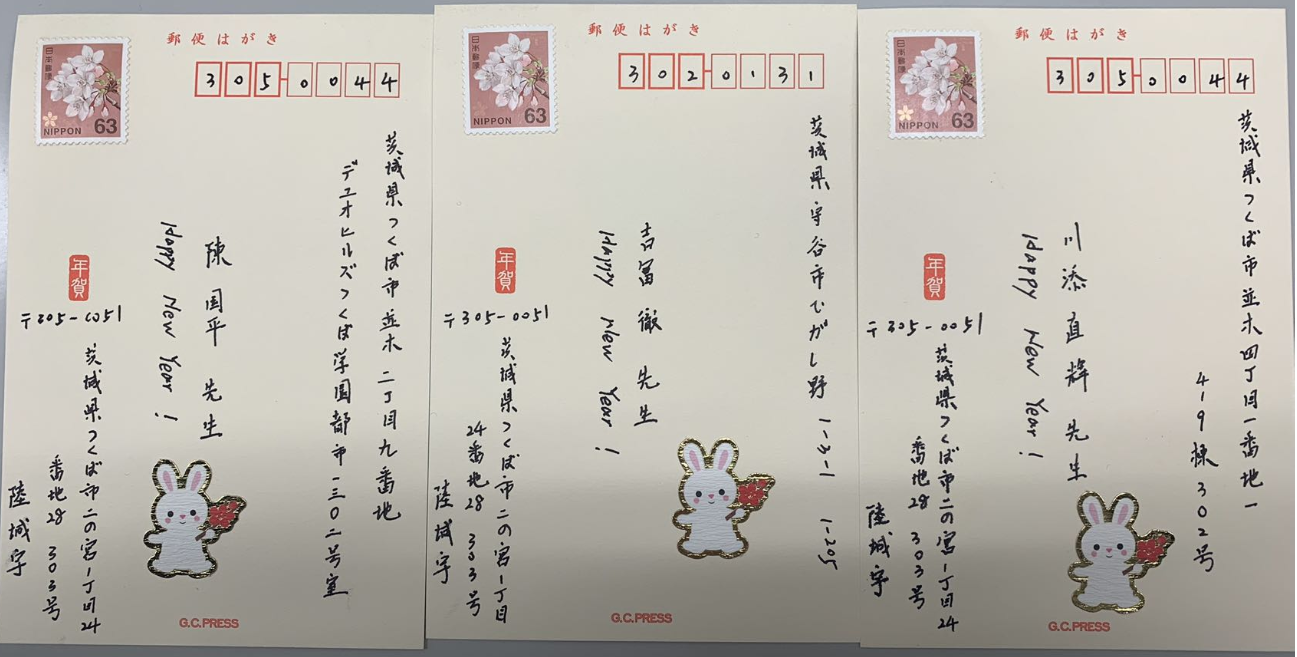 郵便はがき
日本郵便
NIPPON 63
305-0044
茨城県つくば市並木二丁目九番地
デュオヒルズつくば学園都市一三〇二号室
陳国平 先生
Happy New Year!
年賀
〒305-0051
茨城県つくば市二の宮1丁目24
番地28 303号
陸城宇
G.C.PRESS
郵便はがき
日本郵便
NIPPON 63
302-0131
茨城県守谷市ひがし野 1-3-1 1-205
吉冨徹 先生
Happy New Year!
年賀
〒305-0051
茨城県つくば市二の宮1丁目
24番地28 303号
陸城宇
G.C.PRESS
郵便はがき
日本郵便
NIPPON 63
305-0044
茨城県つくば市並木四丁目一番地一
4-9棟 302号
川添直輝 先生
Happy New Year!
年賀
〒305-0051
茨城県つくば市二の宮1丁目24
番地28 303号
陸城宇
G.C.PRESS